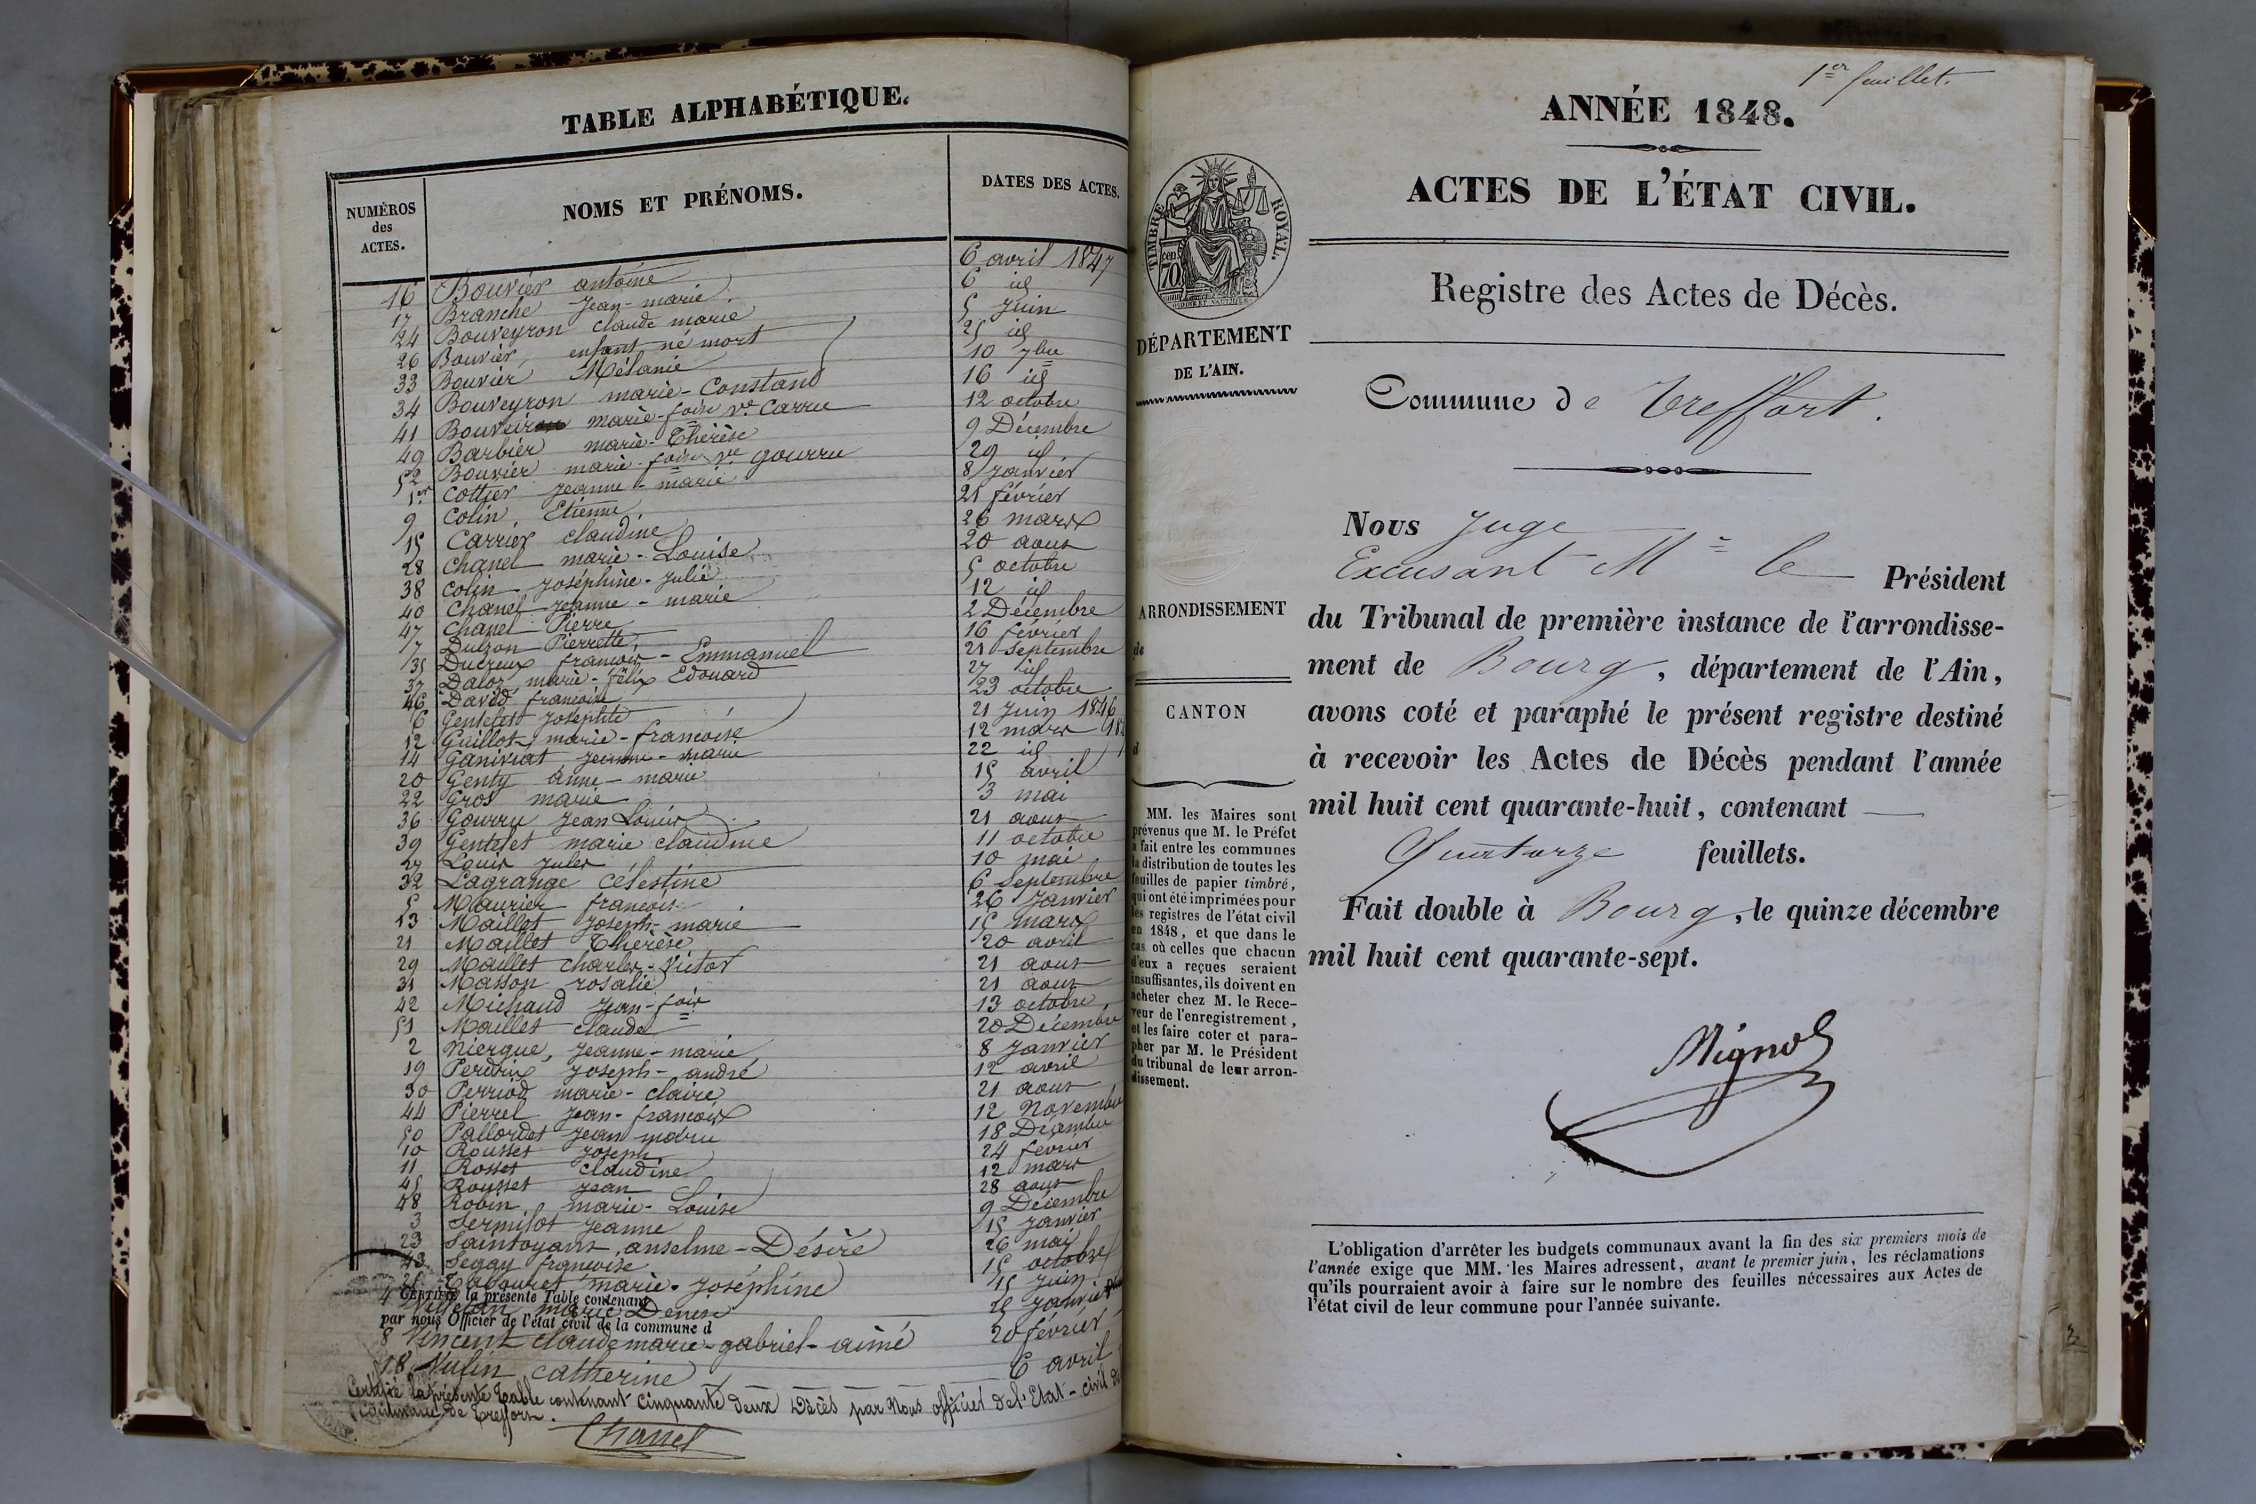 TABLE ALPHABÉTIQUE.
NUMÉROS des ACTES.
NOMS ET PRÉNOMS.
DATES DES ACTES.
16 Bouvier antoine 6 avril 1847
17 Branche Jean-marie 6 id
24 Bouveyron claude marie 5 Juin
26 Bouvier, enfant né mort 25 id
33 Bouvier Mélanie 10 7bre
34 Bouveyron marie-Constand 16 id
41 marie-foise ve Carru 12 octobre
49 Barbier marie-Thérèse 9 Décembre
52 Bouvier marie-foise ve gourru 29 id
1er Cottier Jeanne-marie 8 Janvier
9 Colin Etienne 21 février
15 Carrier claudine 26 mars
28 Chanel marie-Louise 20 aout
38 Colin Joséphine-Julie 5 octobre
40 Chanel Jeanne-marie 12 id
47 Chanel Pierre 2 Décembre
7 Pierrette 16 février
35 Ducreux françois-Emmanuel 21 septembre
37 Daloz marie-félix Edouard 27 id
46 David françoise 23 octobre
6 Gentelet Josephte 21 Juin 1846
12 Guillot marie-françoise 12 mars
14 Ganivat Jeanne-marie 22 id
20 Genty anne-marie 15 avril
22 Gros marie 3 mai
36 Gourru Jean Louis 21 aout
39 Gentelet marie claudine 11 octobre
27 Louis Jules 10 mai
32 Lagrange Célestine 6 septembre
5 Maurier françois 26 Janvier
13 Maillet Joseph-marie 15 mars
21 Maillet Thérèse 20 avril
29 Maillet charles-Victor 21 aout
31 Masson rosalie 21 aout
42 Michaud Jean-fois 13 octobre
51 Maillet claude 20 Décembre
2 Niergue, Jeanne-marie 8 Janvier
19 Perdrix Joseph-andré 12 avril
30 Perriod marie-claire 21 aout
44 Pierrel Jean-françois 12 Novembre
50 Pallordet Jean marie 18 Décembre
10 Rousset Joseph 24 février
11 Rosset claudine 12 mars
45 Rousset Jean 28 aout
48 Robin marie-Louise 9 Décembre
3 Sermilot Jeanne 15 Janvier
23 Saintoyant, anselme-Désiré 26 mai
43 Segay françoise 15 octobre
25 Tabouret marie-Joséphine 15 Juin
CERTIFIÉ la présente Table contenant
4 marie Denise 25 Janvier
par nous Officier de l'état civil de la commune d
8 Vincent claude marie-gabriel-aimé 20 février
18 Vulin catherine 6 avril
Certifié la présente Table contenant cinquante deux Décès par Nous officier de l'Etat-civil de
Commune de Treffort.
Chanel
1er feuillet.
ANNÉE 1848.
ACTES DE L'ÉTAT CIVIL.
TIMBRE ROYAL.
70 cent
Registre des Actes de Décès.
DÉPARTEMENT
DE L'AIN.
Commune de Treffort.
Nous Juge
Excusant Mr le Président
du Tribunal de première instance de l'arrondisse-
ment de Bourg, département de l'Ain,
avons coté et paraphé le présent registre destiné
à recevoir les Actes de Décès pendant l'année
mil huit cent quarante-huit, contenant
Quatorze feuillets.
Fait double à Bourg, le quinze décembre
mil huit cent quarante-sept.
Mignot
ARRONDISSEMENT
de
CANTON
d
MM. les Maires sont
prévenus que M. le Préfet
a fait entre les communes
la distribution de toutes les
feuilles de papier timbré,
qui ont été imprimées pour
les registres de l'état civil
en 1848, et que dans le
cas où celles que chacun
d'eux a reçues seraient
insuffisantes, ils doivent en
acheter chez M. le Rece-
veur de l'enregistrement,
et les faire coter et para-
pher par M. le Président
du tribunal de leur arron-
dissement.
L'obligation d'arrêter les budgets communaux avant la fin des six premiers mois de
l'année exige que MM. les Maires adressent, avant le premier juin, les réclamations
qu'ils pourraient avoir à faire sur le nombre des feuilles nécessaires aux Actes de
l'état civil de leur commune pour l'année suivante.